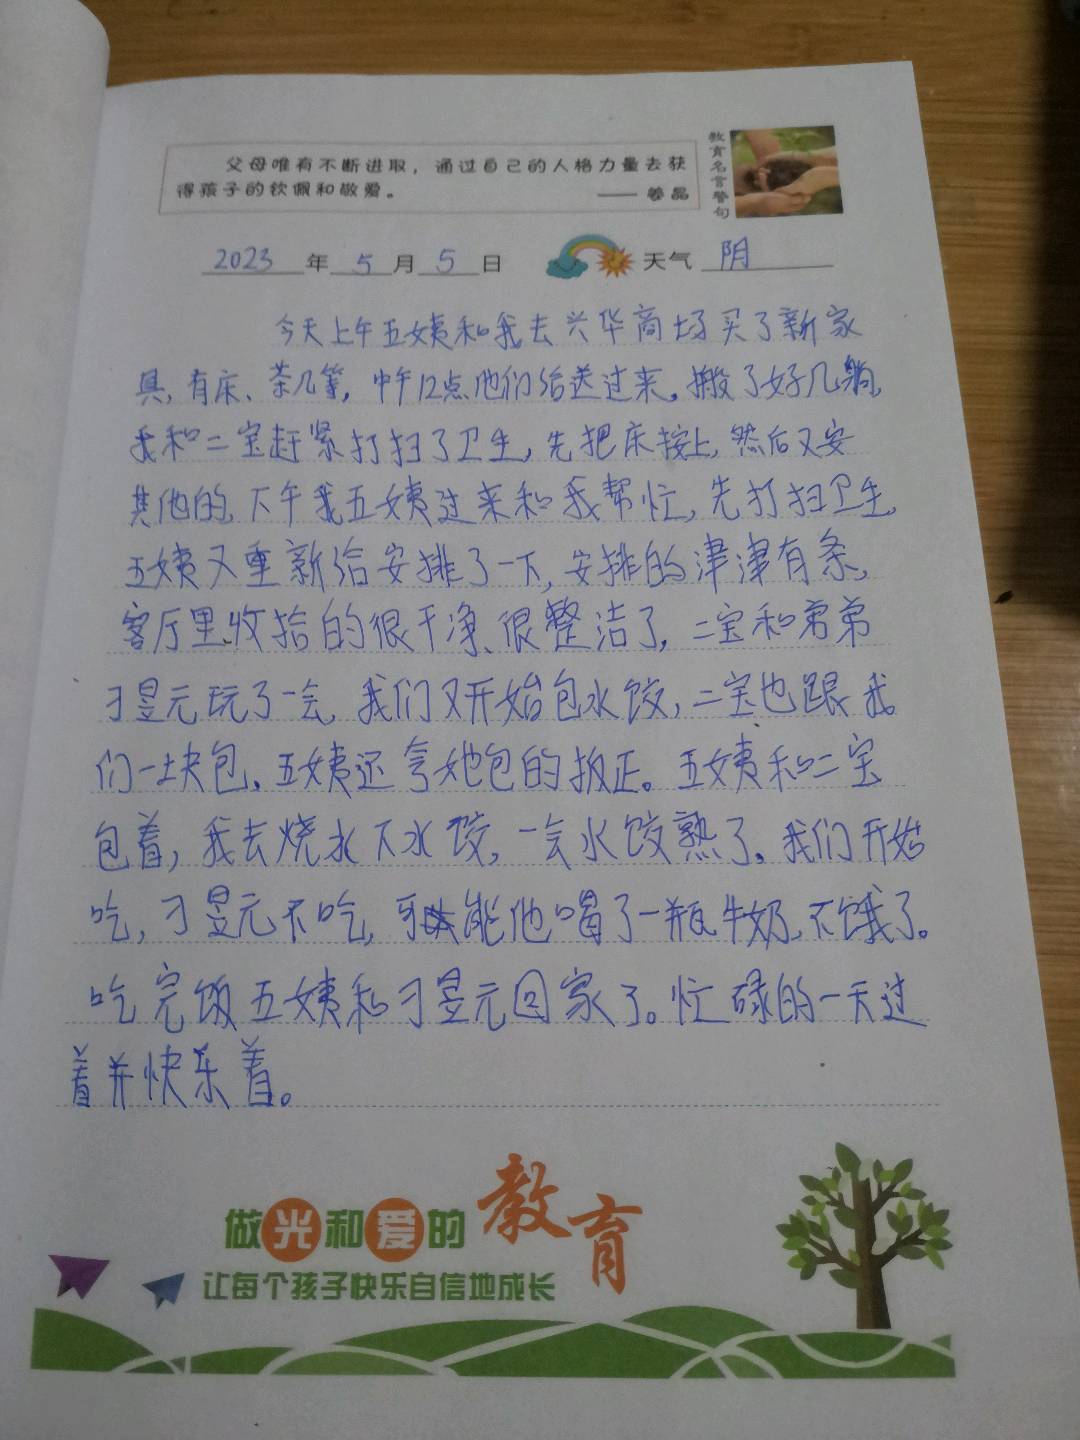 父母唯有不断进取，通过自己的人格力量去获
得孩子的钦佩和敬爱。 —— 姜晶
教育名言警句
2023 年 5 月 5 日 天气 阴
今天上午五姨和我去兴华商场买了新家
具，有床、茶几等，中午12点他们给送过来。搬了好几躺，
我和二宝赶紧打扫了卫生，先把床按上，然后又安
其他的，下午我五姨过来和我帮忙，先打扫卫生，
五姨又重新给安排了一下，安排的津津有条，
客厅里收拾的很干净、很整洁了，二宝和弟弟
刁昱元玩了一会，我们又开始包水饺，二宝也跟我
们一块包，五姨还夸她包的板正。五姨和二宝
包着，我去烧水下水饺，一会水饺熟了。我们开始
吃，刁昱元不吃，可能他喝了一瓶牛奶，不饿了。
吃完饭五姨和刁昱元回家了。忙碌的一天过
着并快乐着。
做光和爱的教育
让每个孩子快乐自信地成长